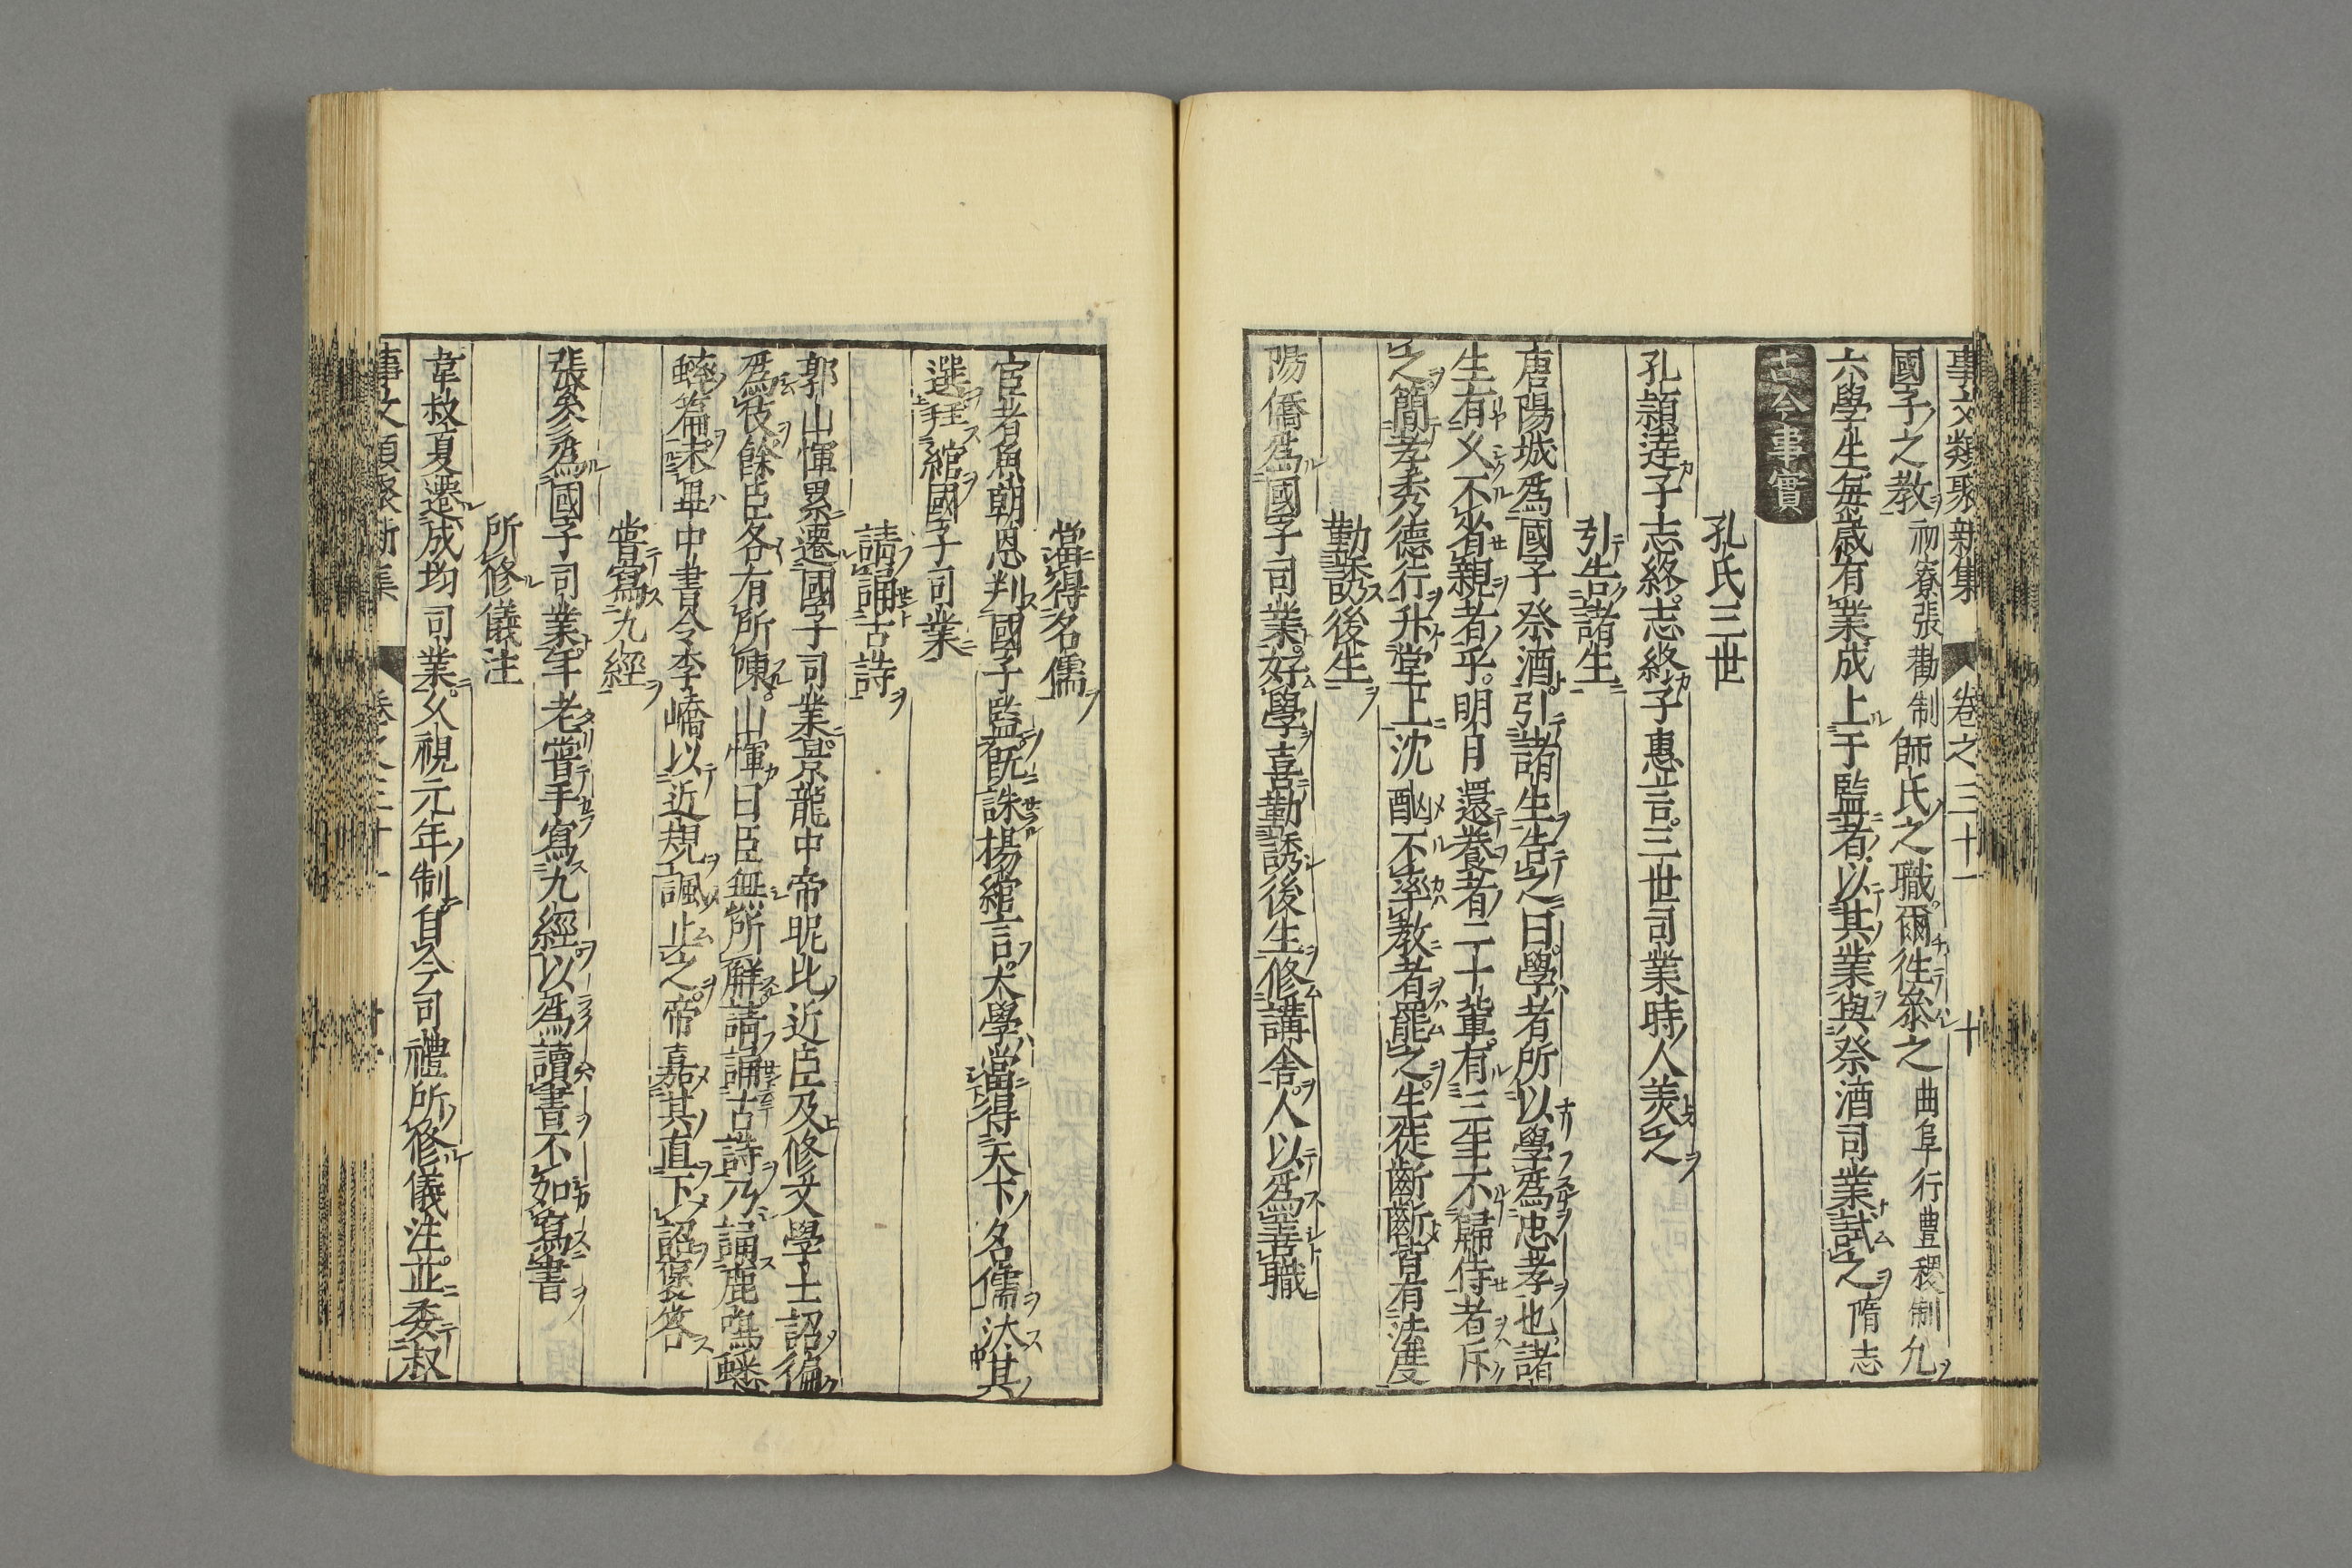 事文類聚新集 卷之三十一 十
國子之教 初寮張勸制 師氏之職爾徃叅之 曲阜行豊稷制 允
六學生每歲有業成上于監者以其業與祭酒司業試之 隋志
古今事實
孔氏三世
孔頴達子志終志終子惠言三世司業時人羨之
引告諸生
唐陽城爲國子祭酒引諸生告之曰學者所以學爲忠孝也諸
生有久不省親者乎明日還養者二十輩有三年不歸侍者斥
之簡孝秀德行升堂上沈酗不率教者罷之生徒斷斷皆有法度
勤誘後生
陽僑爲國子司業好學喜勤誘後生修講舍人以爲善職
當得名儒
宦者魚朝恩判國子監旣誅楊綰言太學當得天下名儒汰其
選拜綰國子司業
請誦古詩
郭山惲累遷國子司業景龍中帝昵比近臣及修文學士詔徧
爲伎餘臣各有所陳山惲曰臣無所解請誦古詩乃誦鹿鳴蟋
蟀篇未畢中書令李嶠以近規諷止之帝嘉其直下詔褒答
嘗寫九經
張參爲國子司業年老嘗手寫九經以爲讀書不如寫書
所修儀注
韋叔夏遷成均司業久視元年制自今司禮所修儀注並委叔
事文類聚新集 卷之三十一